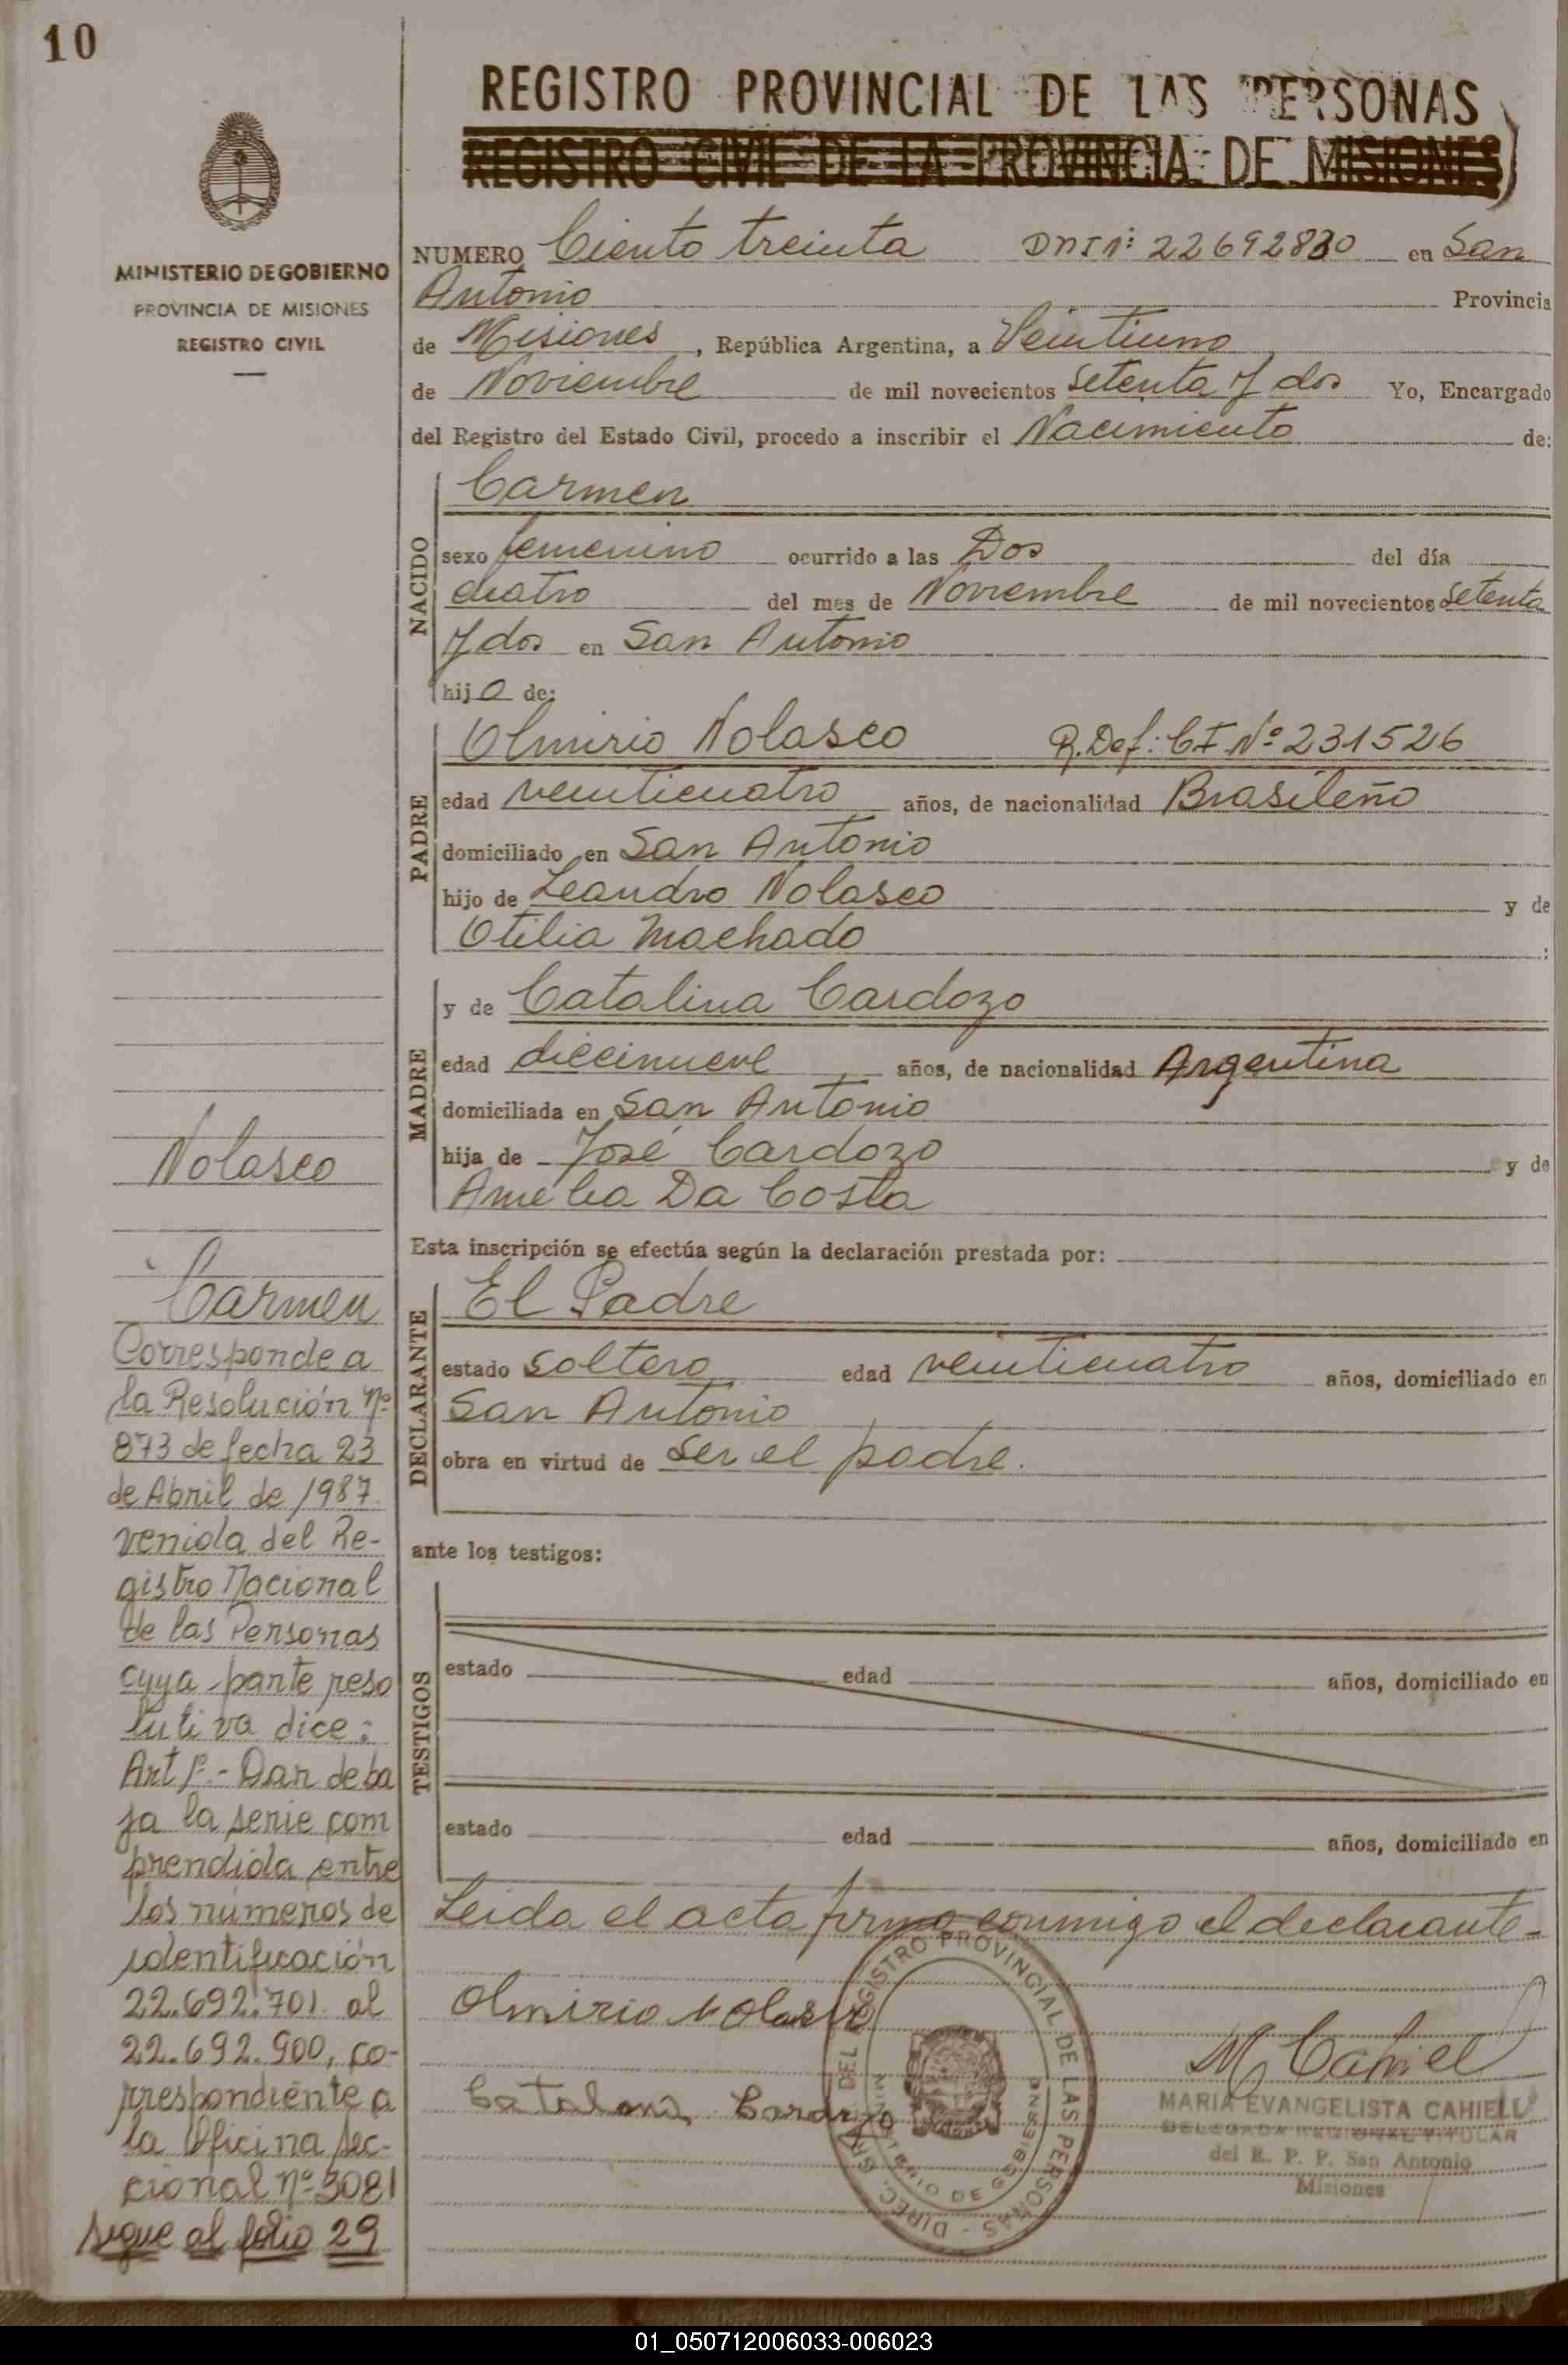 10
REGISTRO PROVINCIAL DE LAS PERSONAS
REGISTRO CIVIL DE LA PROVINCIA DE MISIONES)
MINISTERIO DE GOBIERNO
PROVINCIA DE MISIONES
REGISTRO CIVIL
NUMERO Ciento treinta DNI Nº: 22692830 en San
Antonio Provincia
de Misiones, República Argentina, a Veintiuno
de Noviembre de mil novecientos setenta y dos Yo, Encargado
del Registro del Estado Civil, procedo a inscribir el Nacimiento de:
NACIDO
Carmen
sexo femenino ocurrido a las Dos del día
cuatro del mes de Noviembre de mil novecientos setenta
y dos en San Antonio
hija de:
PADRE
Olmirio Nolasco R.Def: C.I. Nº 231526
edad veinticuatro años, de nacionalidad Brasileño
domiciliado en San Antonio
hijo de Leandro Nolasco y de
Otilia Machado :
MADRE
y de Catalina Cardozo
edad diecinueve años, de nacionalidad Argentina
domiciliada en San Antonio
hija de José Cardozo y de
Amelia Da Costa
Esta inscripción se efectúa según la declaración prestada por:
DECLARANTE
El Padre
estado soltero edad veinticuatro años, domiciliado en
San Antonio
obra en virtud de ser el padre.
ante los testigos:
TESTIGOS
estado edad años, domiciliado en
estado edad años, domiciliado en
Leida el acta firma conmigo el declarante-
Olmirio Nolasco
Catalana Cardozo
DIREC. GRAL. DEL REGISTRO PROVINCIAL DE LAS PERSONAS -
MINISTERIO DE GOBIERNO
M Cahiel
MARIA EVANGELISTA CAHIELL
DELEGADA REGIONAL TITULAR
del R. P. P. San Antonio
Misiones
Nolasco
Carmen
Corresponde a
la Resolución Nº
873 de fecha 23
de Abril de 1987
venida del Re-
gistro Nacional
de las Personas
cuya parte reso
lutiva dice:
Art 1º.- Dar de ba
ja la serie com
prendida entre
los números de
identificación
22.692.701 al
22.692.900, co-
rrespondiente a
la Oficina Sec-
cional nº 3081
sigue al folio 29
01_050712006033-006023